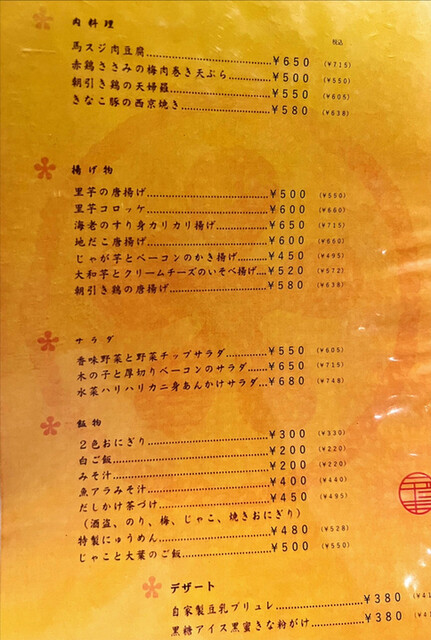 肉料理
税込
馬スジ肉豆腐 ¥650 (¥715)
赤鶏ささみの梅肉巻き天ぷら ¥500 (¥550)
朝引き鶏の天婦羅 ¥550 (¥605)
きなこ豚の西京焼き ¥580 (¥638)
揚げ物
里芋の唐揚げ ¥500 (¥550)
里芋コロッケ ¥600 (¥660)
海老のすり身カリカリ揚げ ¥650 (¥715)
地だこ唐揚げ ¥600 (¥660)
じゃが芋とベーコンのかき揚げ ¥450 (¥495)
大和芋とクリームチーズのいそべ揚げ ¥520 (¥572)
朝引き鶏の唐揚げ ¥580 (¥638)
サラダ
香味野菜と野菜チップサラダ ¥550 (¥605)
木の子と厚切りベーコンのサラダ ¥650 (¥715)
水菜ハリハリカニ身あんかけサラダ ¥680 (¥748)
飯物
2色おにぎり ¥300 (¥330)
白ご飯 ¥200 (¥220)
みそ汁 ¥200 (¥220)
魚アラみそ汁 ¥400 (¥440)
だしかけ茶づけ ¥450 (¥495)
(酒盗、のり、梅、じゃこ、焼きおにぎり)
特製にゅうめん ¥480 (¥528)
じゃこと大葉のご飯 ¥500 (¥550)
デザート
自家製豆乳ブリュレ ¥380
黒糖アイス黒蜜きな粉がけ ¥380